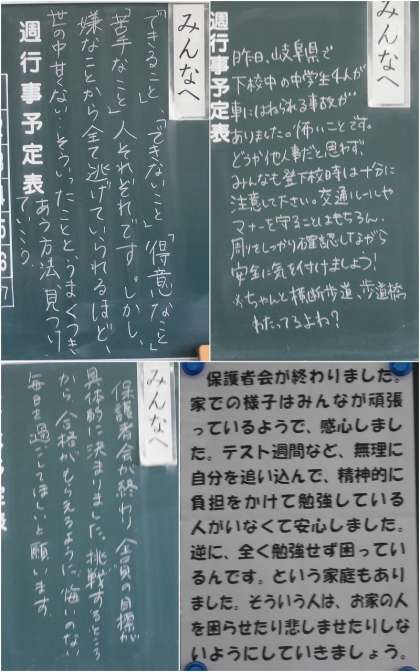 みんなへ
「できること」、「できないこと」「得意なこと」
「苦手なこと」人それぞれです。しかし、
嫌なことから全て逃げていられるほど、
世の中甘くない…そういったことと、うまくつき
あう方法、見つけ
ていこう。
週行事予定表
みんなへ
昨日、岐阜県で
下校中の中学生4人が
車にはねられる事故が
ありました。怖いことです。
どうか他人事だと思わず、
みんなも登下校時は十分に
注意して下さい。交通ルールや
マナーを守ることはもちろん、
周りをしっかり確認しながら
安全に気を付けましょう!
※ちゃんと横断歩道、歩道橋
わたってるよね?
週行事予定表
みんなへ
保護者会が終わり、全員の目標が
具体的に決まりました。挑戦するという
から、合格がもらえるように、悔いのない
毎日を過ごしてほしいと願います。
保護者会が終わりました。
家での様子はみんなが頑張
っているようで、感心しまし
た。テスト週間など、無理に
自分を追い込んで、精神的に
負担をかけて勉強している
人がいなくて安心しました。
逆に、全く勉強せず困ってい
るんです。という家庭もあり
ました。そういう人は、お家の人
を困らせたり悲しませたりしな
いようにしていきましょう。